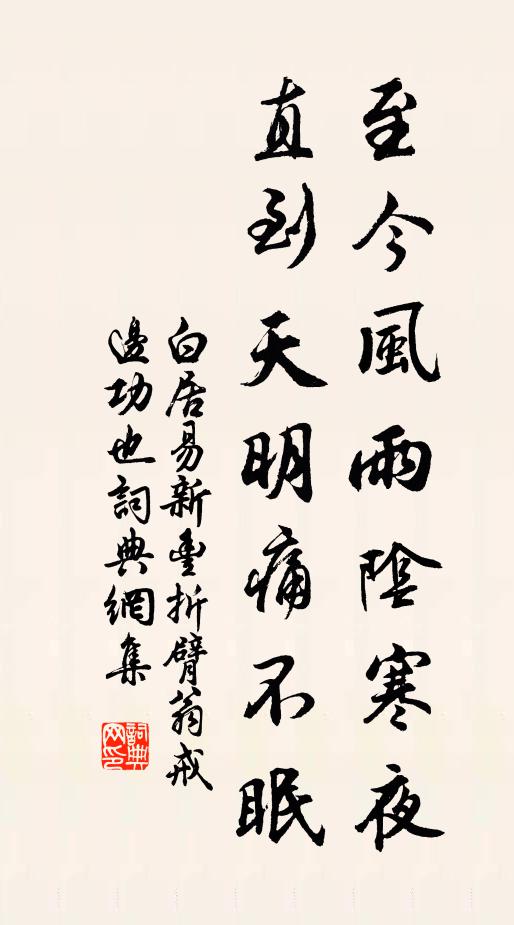 至今風雨陰寒夜
直到天明痛不眠
白居易新豐折臂翁戒
邊功也詞典網集
詞典網印